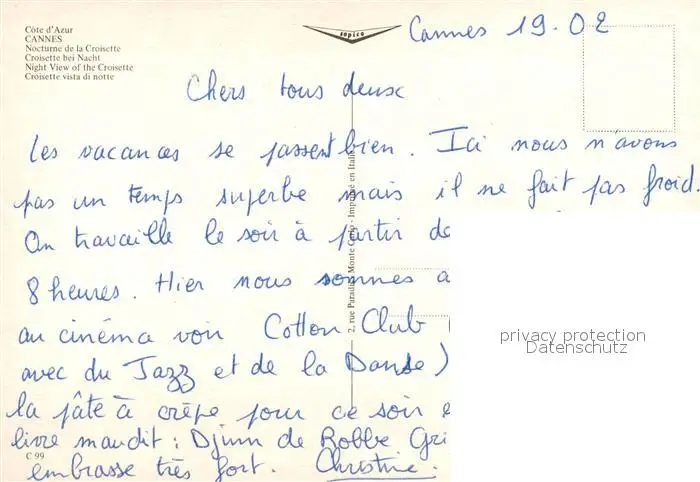 Côte d'Azur
CANNES
Nocturne de la Croisette
Croisette bei Nacht
Night View of the Croisette
Croisette vista di notte
sopico
Cannes 19.02
Chers tous deux
Les vacances se passent bien. Ici nous n'avons
pas un temps superbe mais il ne fait pas froid.
On travaille le soir à partir de
8 heures. Hier nous sommes a
au cinéma voir Cotton Club (
avec du Jazz et de la Danse)
la pâte à crêpe pour ce soir e
livre maudit : Djinn de Robbe Gri
embrasse très fort. Christine.
C 99
2, rue Paradis Monte Carlo - Imprimé en Italie
privacy protection
Datenschutz